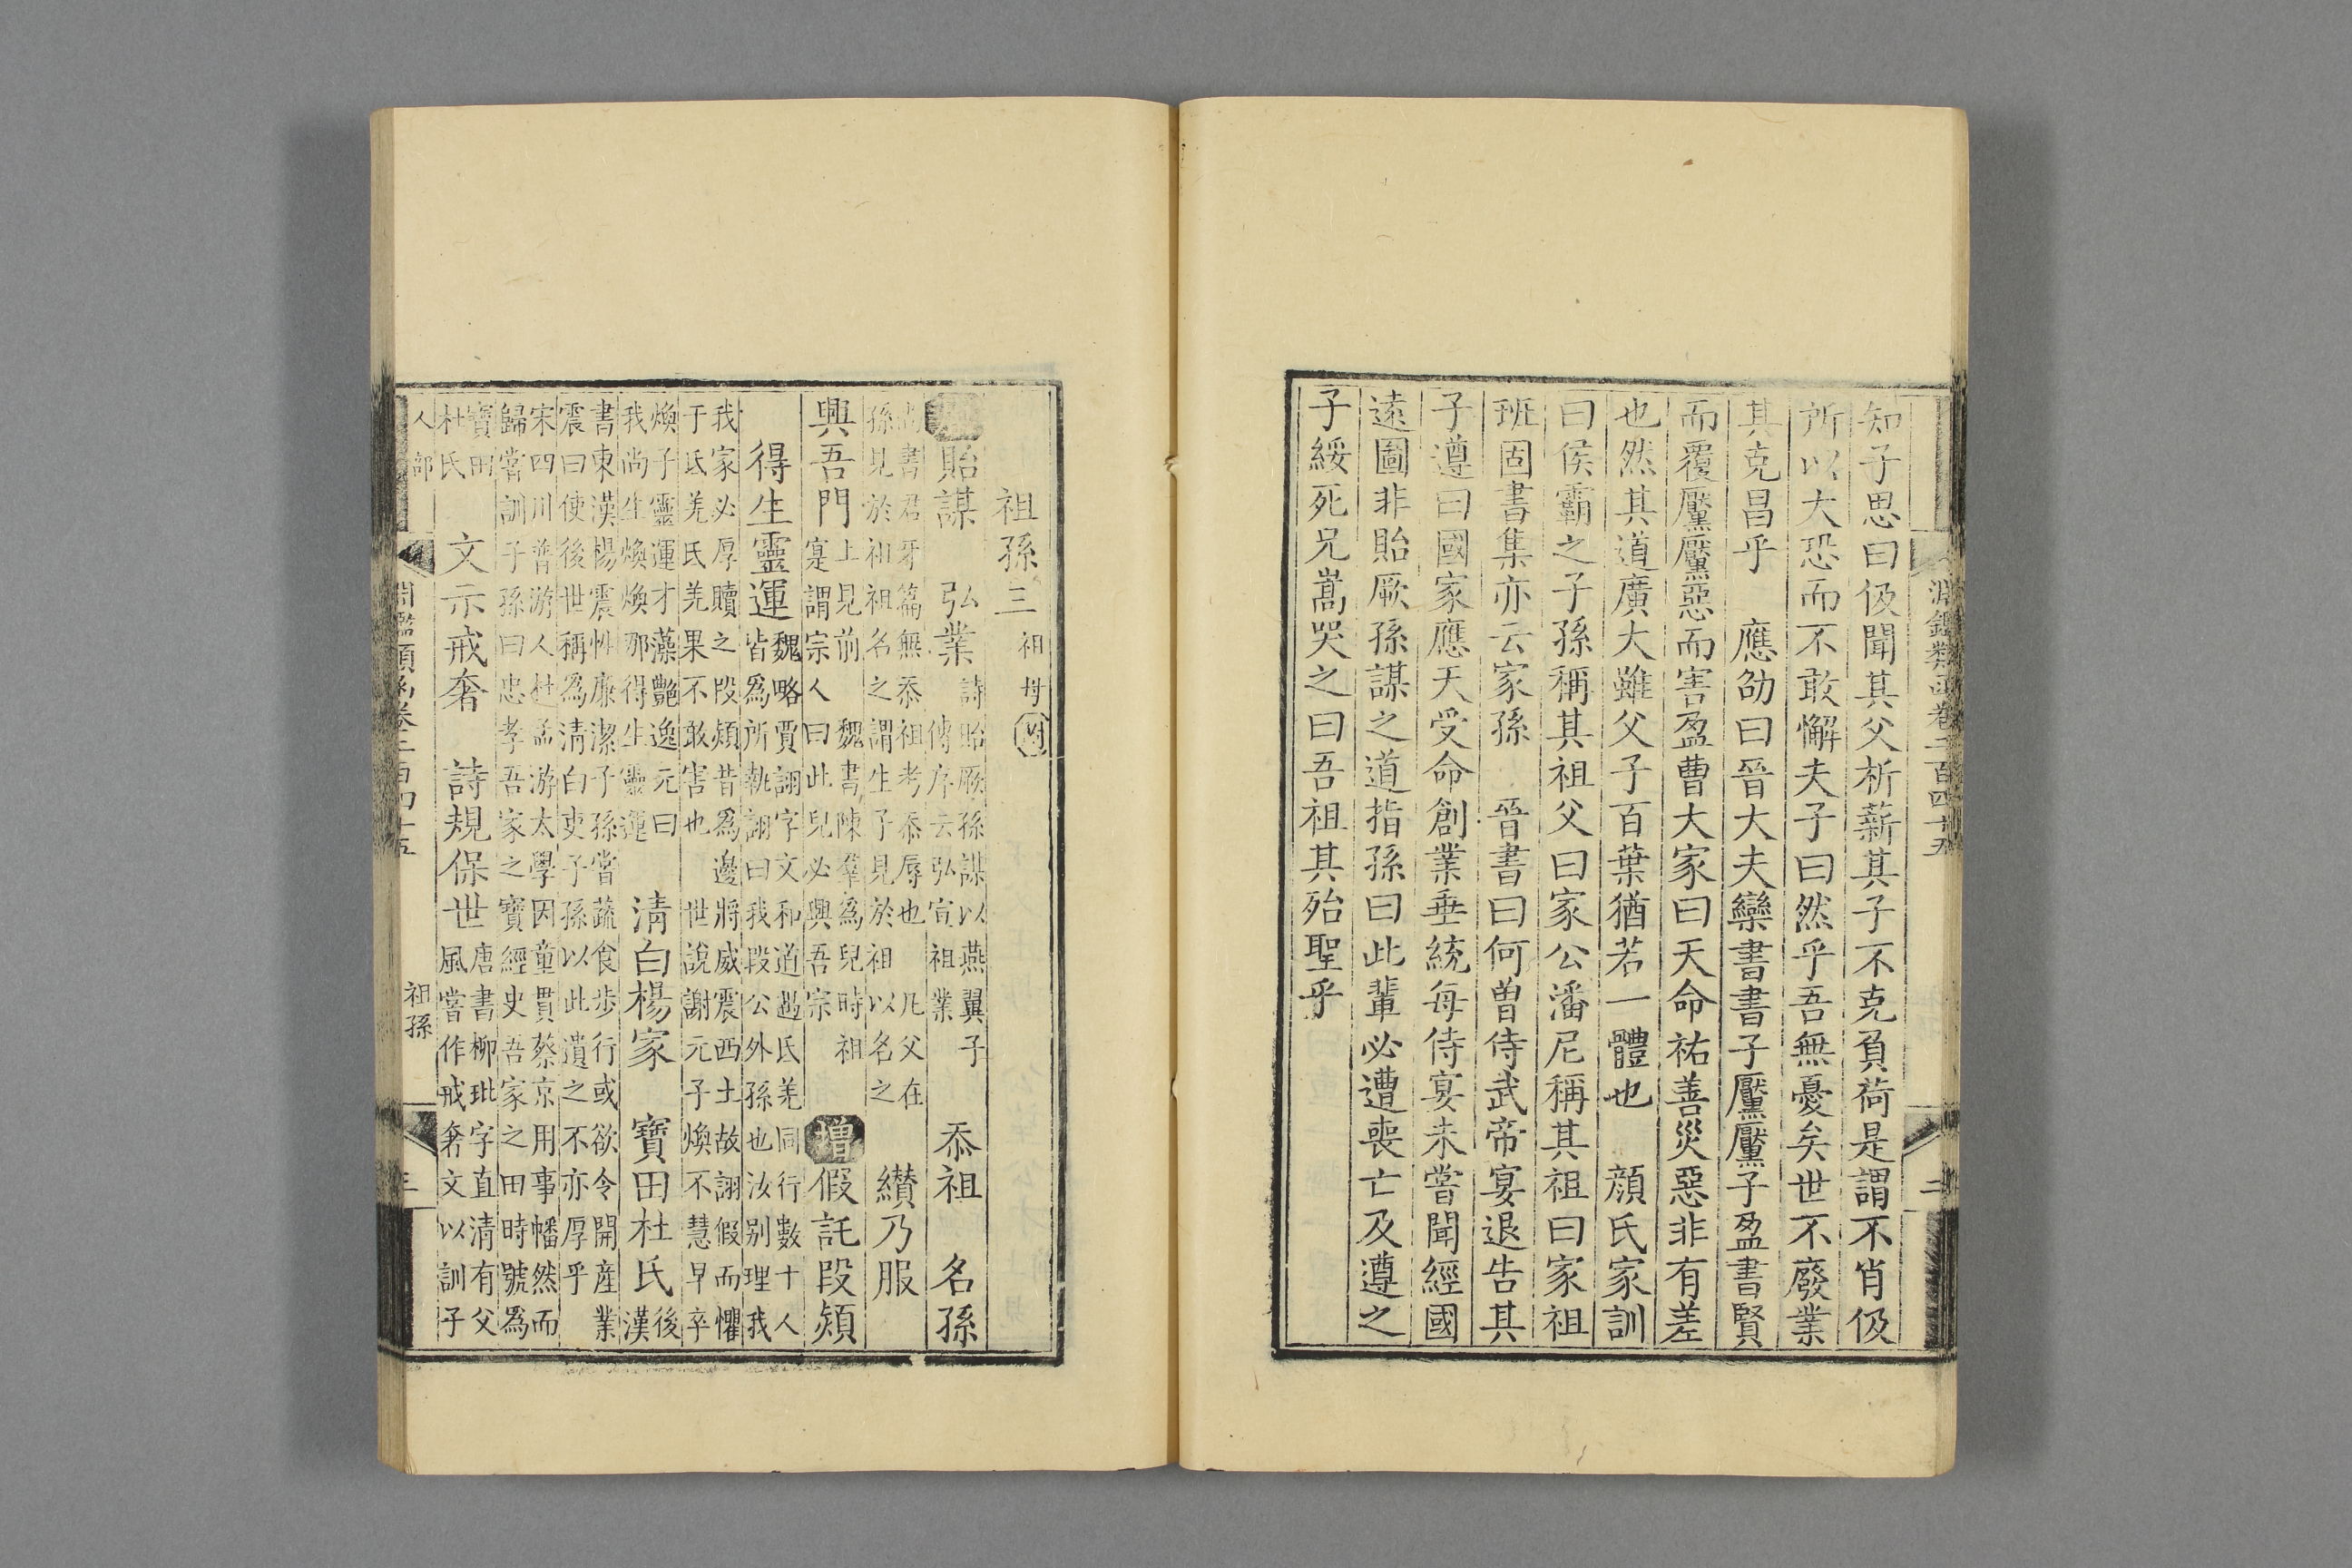 淵鑑類函卷二百四十五
二
知子思曰伋聞其父析薪其子不克負荷是謂不肖伋
所以大恐而不敢懈夫子曰然乎吾無憂矣世不廢業
其克昌乎　應劭曰晉大夫欒書書子黶黶子盈書賢
而覆黶黶惡而害盈曹大家曰天命祐善災惡非有差
也然其道廣大雖父子百葉猶若一體也　顔氏家訓
曰侯霸之子孫稱其祖父曰家公潘尼稱其祖曰家祖
班固書集亦云家孫　晉書曰何曾侍武帝宴退告其
子遵曰國家應天受命創業垂統每侍宴未嘗聞經國
遠圖非貽厥孫謀之道指孫曰此輩必遭喪亡及遵之
子綏死兄嵩哭之曰吾祖其殆聖乎
祖孫三　祖母附
貽謀　弘業　詩貽厥孫謀以燕翼子　傳序云弘宣祖業　忝祖　名孫
尚書君牙篇無忝祖考忝辱也　凡父在
孫見於祖祖名之謂生子見於祖以名之　纉乃服
興吾門　上見前　魏書陳羣爲兒時祖
寔謂宗人曰此兒必興吾宗　增　假託段熲
得生靈運　魏略賈詡字文和道遇氐羌同行數十人
皆爲所執詡曰我段公外孫也汝别理我
我家必厚贖之段熲昔爲邊將威震西土故詡假而懼
于氐羌氐羌果不敢害也　世說謝元子煥不慧早卒
煥子靈運才藻艷逸元曰
我尚生煥煥那得生靈運　清白楊家　寶田杜氏　後漢
書東漢楊震性廉潔子孫嘗蔬食步行或欲令開産業
震曰使後世稱爲清白吏子孫以此遺之不亦厚乎
宋四川普游人杜孟游太學因童貫蔡京用事幡然而
歸嘗訓子孫曰忠孝吾家之寶經史吾家之田時號爲
寶田
杜氏　文示戒奢　詩規保世　唐書柳玭字直清有父
風嘗作戒奢文以訓子
人部
淵鑑類函卷二百四十五
祖孫
三